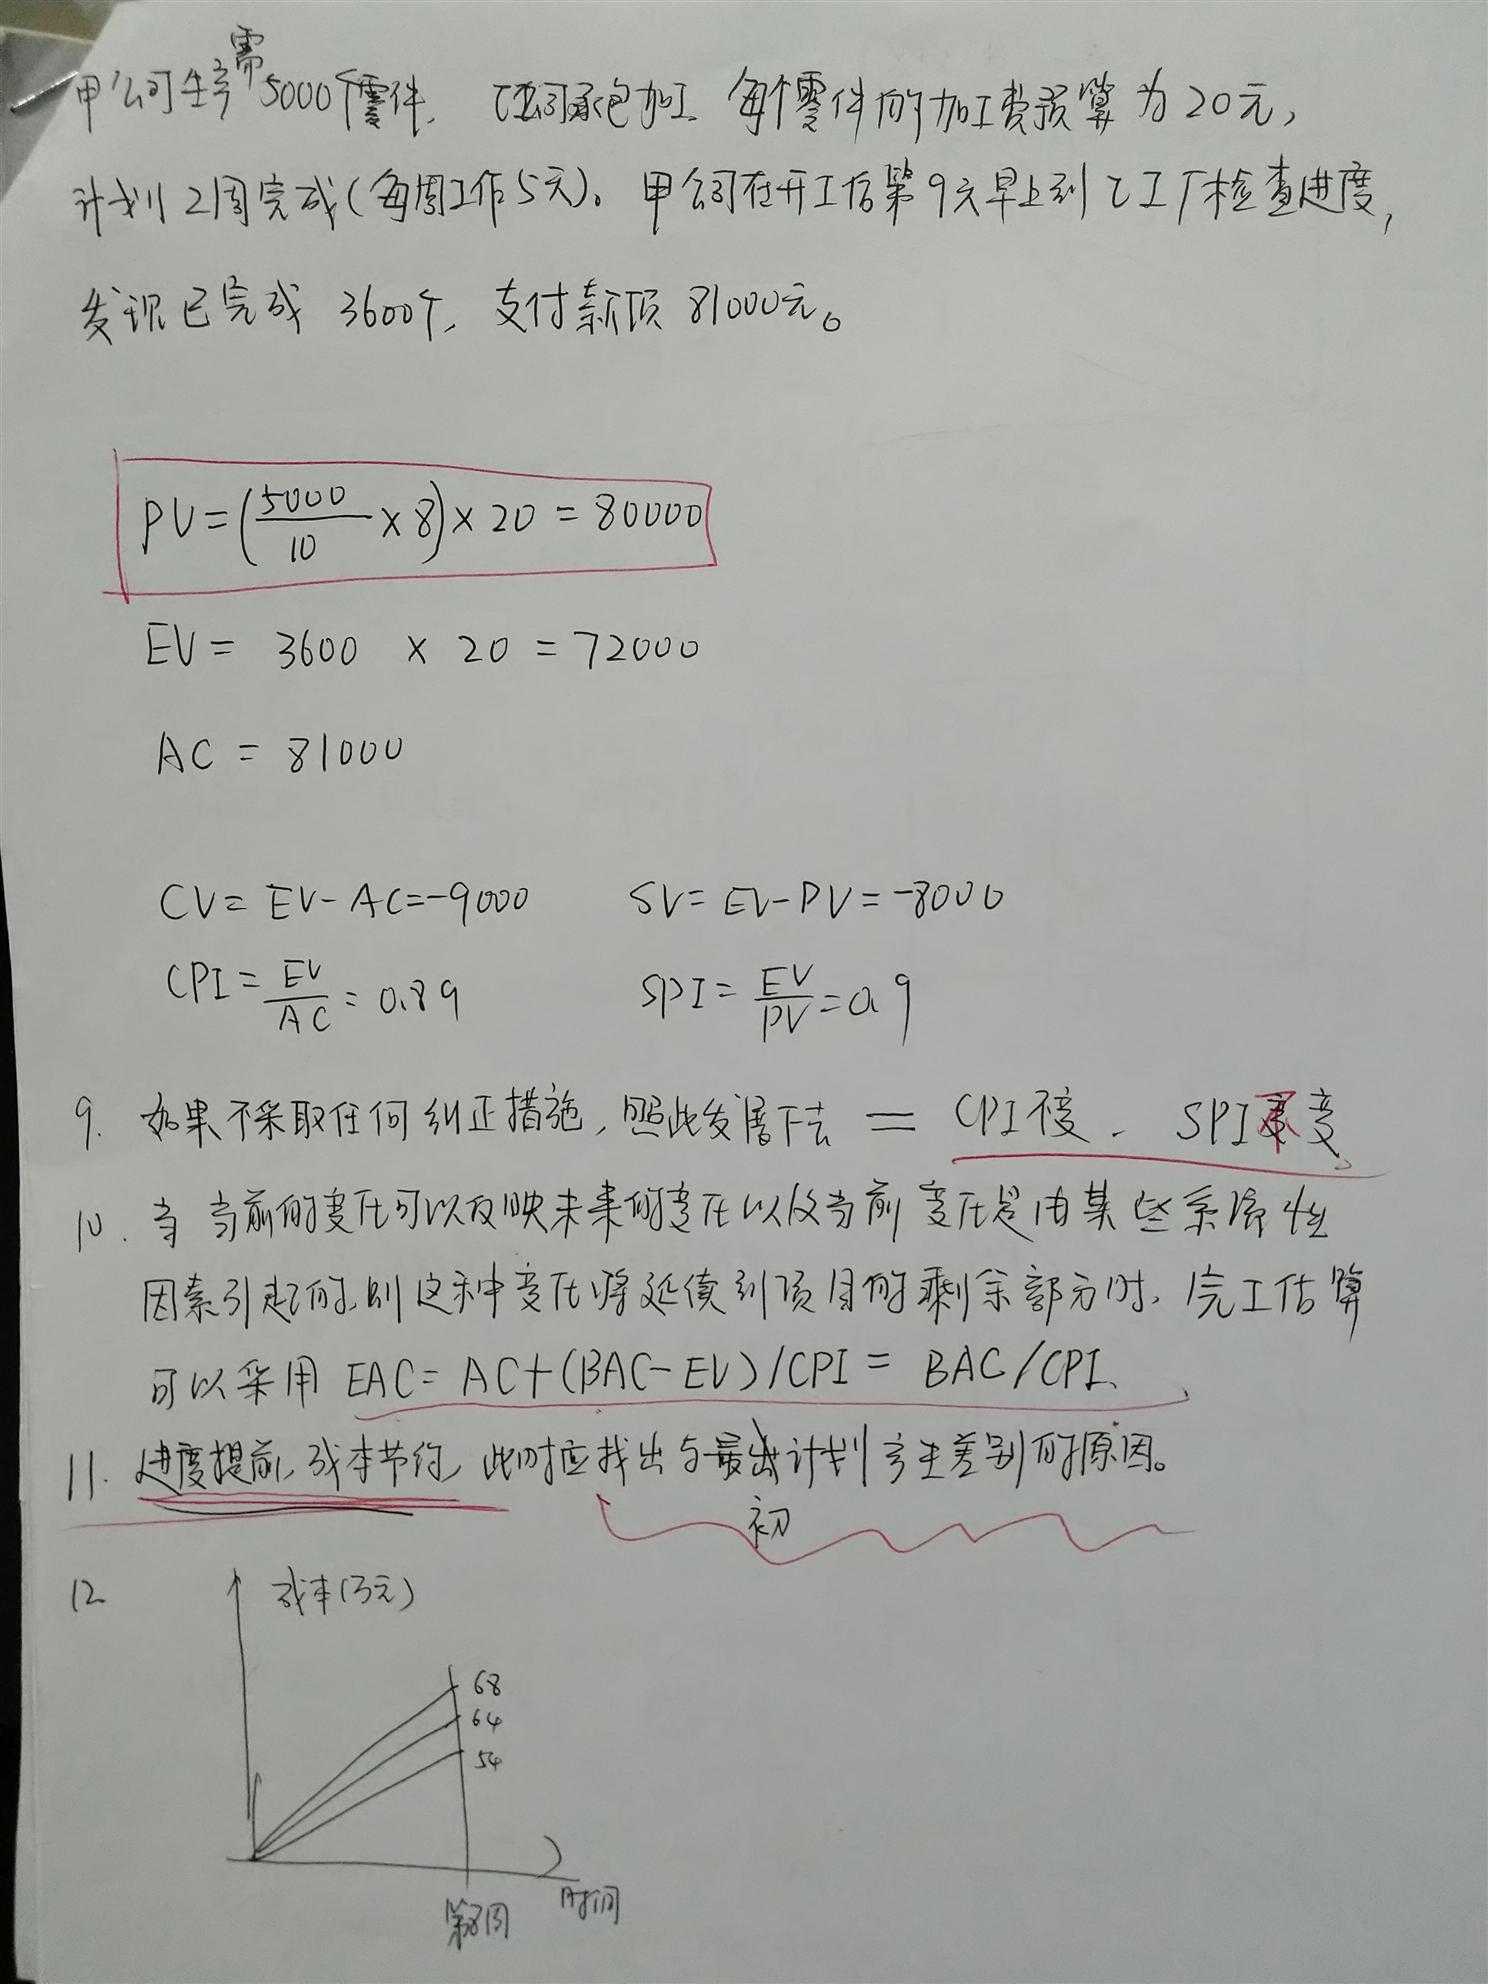 需
甲公司生产5000个零件，乙公司承包加工，每个零件的加工费预算为20元，
计划2周完成(每周工作5天)。甲公司在开工后第9天早上到乙工厂检查进度，
发现已完成3600个，支付款项81000元。
PV=(5000/10×8)×20=80000
EV= 3600 × 20 = 72000
AC = 81000
CV= EV-AC=-9000 SV= EV-PV=-8000
CPI= EV/AC = 0.89 SPI= EV/PV=0.9
9. 如果不采取任何纠正措施，照此发展下去 = CPI不变、SPI不变
10. 当当前的变化可以反映未来的变化以及当前变化是由某些系统性
因素引起的，则这种变化将延续到项目的剩余部分时，完工估算
可以采用 EAC= AC+(BAC-EV)/CPI = BAC/CPI、
11. 进度提前，成本节约，此时应找出与最初计划产生差别的原因。
12 成本(万元)
68
64
54
第8周 时间